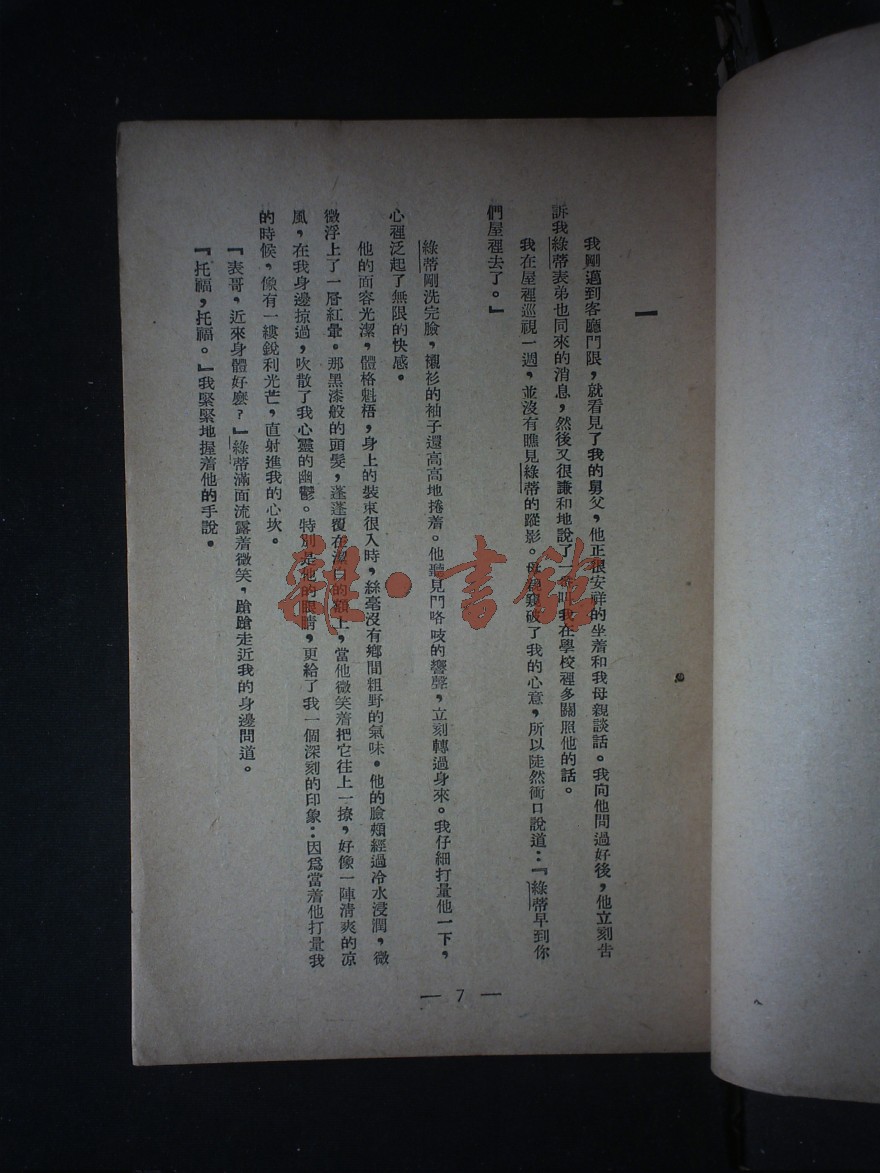 一
我剛邁到客廳門限，就看見了我的舅父，他正很安祥的坐着和我母親談話。我向他問過好後，他立刻告
訴我綠蒂表弟也同來的消息，然後又很謙和地說了一番叫我在學校裡多關照他的話。
我在屋裡巡視一週，並沒有瞧見綠蒂的蹤影。母親窺破了我的心意，所以陡然衝口說道：『綠蒂早到你
們屋裡去了。』
綠蒂剛洗完臉，襯衫的袖子還高高地捲着。他聽見門咯吱的響聲，立刻轉過身來。我仔細打量他一下，
心裡泛起了無限的快感。
他的面容光潔，體格魁梧，身上的裝束很入時，絲毫沒有鄉間粗野的氣味。他的臉頰經過冷水浸潤，微
微浮上了一層紅暈。那黑漆般的頭髮，蓬蓬覆在潔白的額上，當他微笑着把它往上一撩，好像一陣清爽的凉
風，在我身邊掠過，吹散了我心靈的幽鬱。特別是他的眼睛，更給了我一個深刻的印象：因爲當着他打量我
的時候，像有一縷銳利光芒，直射進我的心坎。
『表哥，近來身體好麽？』綠蒂滿面流露着微笑，蹌蹌走近我的身邊問道。
『托福，托福。』我緊緊地握着他的手說。
— 7 —
雜·書館